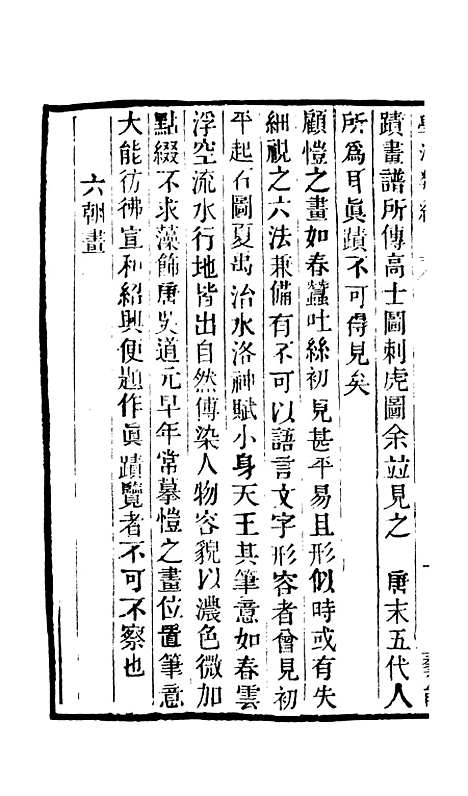 蹟畫譜所傳高士圖刺虎圖余竝見之 唐末五代人
所爲耳眞蹟不可得見矣
顧愷之畫如春蠶吐絲初見甚平易且形似時或有失
細視之六法兼備有不可以語言文字形容者曾見初
平起石圖夏禹治水洛神賦小身天王其筆意如春雲
浮空流水行地皆出自然傅染人物容貌以濃色微加
點綴不求藻飾唐吳道元早年常摹愷之畫位置筆意
大能彷彿宣和紹興便題作眞蹟覽者不可不察也
六朝畫